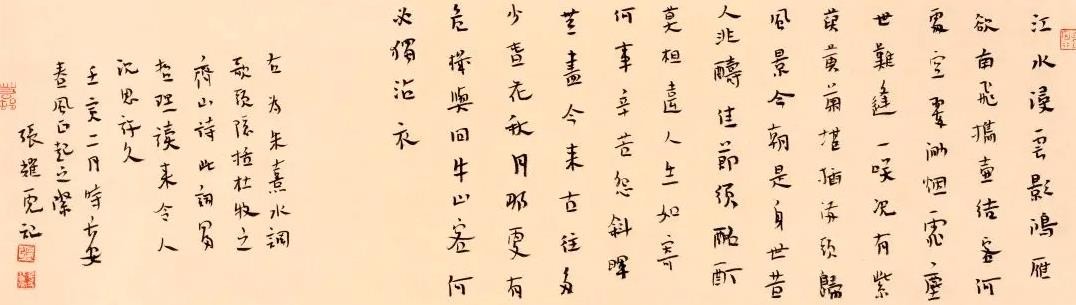 江水浸雲影鴻雁
欲南飛攜壺結客何
處空翠渺烟霏塵
世難逢一咲况有紫
萸黄菊堪插滿頭歸
風景今朝是身世昔
人非醻佳節須酩酊
莫相違人生如寄
何事辛苦怨斜暉
無盡今來古往多
少春花秋月那更有
危機與問牛山客何
必獨沾衣
右為朱熹水調
歌頭隱括杜牧之
齊山詩此詞富
哲理讀來令人
沉思許久
壬寅二月時長安
春風正起之際
張 記